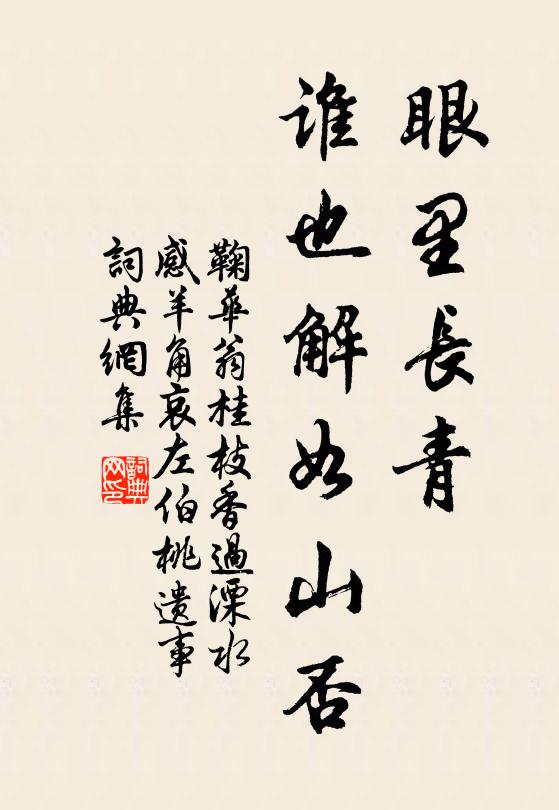 眼里長青
誰也解如山否
鞠華翁桂枝香過溧水
感羊角哀左伯桃遺事
詞典網集
詞典
网印